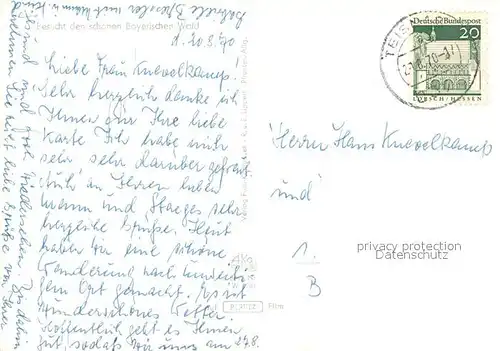 Besucht den schönen Bayerischen Wald
d. 20.8.70
Liebe Frau Knevelkamp!
Sehr herzlich danke ich
Ihnen für Ihre liebe
Karte. Ich habe mich
sehr sehr darüber gefreut
Auch an Ihren lieben
Mann und sehr
herzliche Grüße. Heut
haben wir eine schöne
Wanderung nach
dem Ort gemacht. Es ist
wunderschönes Wetter.
Hoffentlich geht es Ihnen
gut, sodaß wir uns am 27.8.
gesund und froh wiedersehen.
Sie recht liebe Grüße von Ihrer
Deutsche Bundespost
20
LORSCH/HESSEN
Herrn Hans Knevelkamp
und
1.
B
privacy protection
Datenschutz